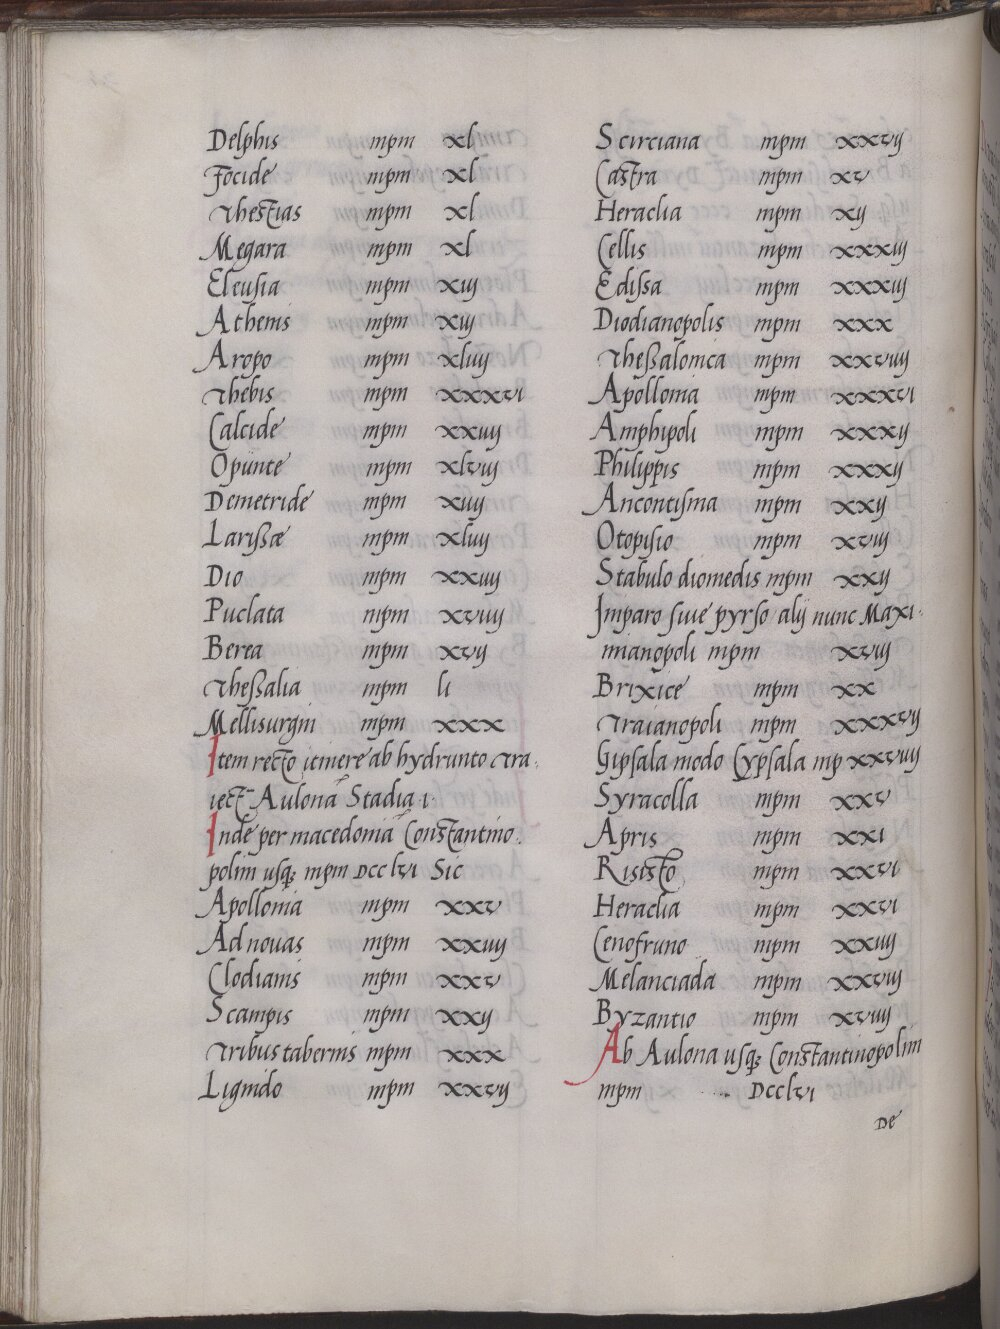 Delphis mpm xl
Focide mpm xl
Thestias mpm xl
Megara mpm xl
Eleusia mpm xiij
Athenis mpm xiij
Aropo mpm xliiij
Thebis mpm xxxvi
Calcide mpm xxiiij
Opunte mpm xlviij
Demetride mpm xiiij
Laryssæ mpm xliiij
Dio mpm xxiiij
Puclata mpm xviiij
Berea mpm xvij
Thessalia mpm li
Mellisurgin mpm xxx
Item recto itinere ab hydrunto Tra
iect Aulona Stadia i
Inde per macedonia Constantino
polim usq; mpm DCClvi Sic
Apollonia mpm xxv
Ad novas mpm xxiiij
Clodianis mpm xxv
Scampis mpm xxij
Tribus tabernis mpm xxx
Lignido mpm xxvij
Scirciana mpm xxvij
Castra mpm xv
Heraclia mpm xij
Cellis mpm xxxiij
Edissa mpm xxxiij
Diodianopolis mpm xxx
Thessalonica mpm xxviiij
Apollonia mpm xxxvi
Amphipoli mpm xxxij
Philippis mpm xxxij
Ancontisma mpm xxij
Otopisio mpm xviij
Stabulo diomedis mpm xxij
Imparo sive pyrso alij nunc Maxi
mianopoli mpm xviij
Brixice mpm xx
Traianopoli mpm xxxvij
Gipsala modo Cypsala mp xxviiij
Syracolla mpm xxv
Apris mpm xxi
Risisto mpm xxvi
Heraclia mpm xxvi
Cenofruno mpm xxiiij
Melanciada mpm xxviij
Byzantio mpm xviiij
Ab Aulona usq; Constantinopolim
mpm DCClvi
De